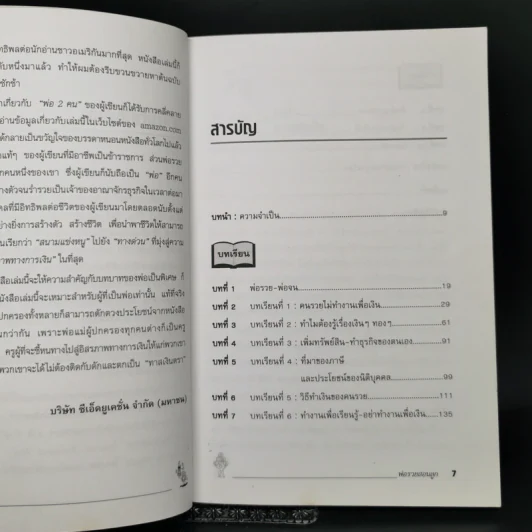 ทธิพลต่อนักอ่านชาวอเมริกันมากที่สุด หนังสือเล่มนี้ก็
ับหนึ่งมาแล้ว ทำให้ผมต้องรีบขวนขวายหาต้นฉบับ
ชักช้า
เกี่ยวกับ "พ่อ 2 คน" ของผู้เขียนก็ได้รับการคลี่คลาย
อ่านข้อมูลเกี่ยวกับเล่มนี้ในเว็บไซต์ของ amazon.com
ด้กลายเป็นขวัญใจของบรรดาหนอนหนังสือทั่วโลกไปแล้ว
แท้ๆ ของผู้เขียนที่มีอาชีพเป็นข้าราชการ ส่วนพ่อรวย
กคนหนึ่งของเขา ซึ่งผู้เขียนก็นับถือเป็น "พ่อ" อีกคน
างตัวจนร่ำรวยเป็นเจ้าของอาณาจักรธุรกิจในเวลาต่อมา
คลที่มีอิทธิพลต่อชีวิตของผู้เขียนมาโดยตลอดนับตั้งแต่
ย่างยิ่งการสร้างตัว สร้างชีวิต เพื่อนำพาชีวิตให้สามารถ
นเรียกว่า "สนามแข่งหนู" ไปยัง "ทางด่วน" ที่มุ่งสู่ความ
ภาพทางการเงิน" ในที่สุด
สือเล่มนี้จะให้ความสำคัญกับบทบาทของพ่อเป็นพิเศษ ก็
นังสือเล่มนี้จะเหมาะสำหรับผู้ที่เป็นพ่อเท่านั้น แท้ที่จริง
ปกครองทั้งหลายก็สามารถตักตวงประโยชน์จากหนังสือ
นกว่ากัน เพราะพ่อแม่ผู้ปกครองทุกคนต่างก็เป็นครู
ครูผู้ที่จะชี้หนทางไปสู่อิสรภาพทางการเงินให้แก่พวกเขา
พวกเขาจะได้ไม่ต้องติดกับดักและตกเป็น "ทาสเงินตรา"
บริษัท ซีเอ็ดยูเคชั่น จำกัด (มหาชน)
สารบัญ
บทนำ : ความจำเป็น 9
บทเรียน
บทที่ 1 พ่อรวย-พ่อจน 19
บทที่ 2 บทเรียนที่ 1 : คนรวยไม่ทำงานเพื่อเงิน 29
บทที่ 3 บทเรียนที่ 2 : ทำไมต้องรู้เรื่องเงินๆ ทองๆ 61
บทที่ 4 บทเรียนที่ 3 : เพิ่มทรัพย์สิน-ทำธุรกิจของตนเอง 91
บทที่ 5 บทเรียนที่ 4 : ที่มาของภาษี
และประโยชน์ของนิติบุคคล 99
บทที่ 6 บทเรียนที่ 5 : วิธีทำเงินของคนรวย 111
บทที่ 7 บทเรียนที่ 6 : ทำงานเพื่อเรียนรู้-อย่าทำงานเพื่อเงิน 135
พ่อรวยสอนลูก 7